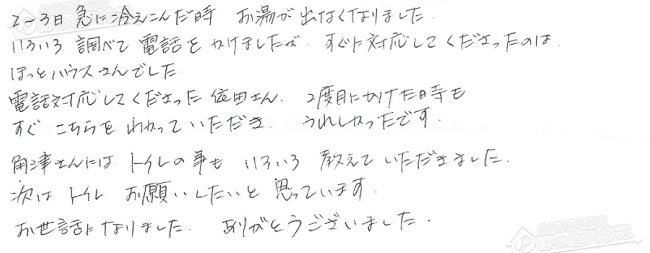 2～3日 急に冷えこんだ時 お湯が出なくなりました.
いろいろ 調べて 電話を かけましたが. すぐに対応してくださったのは.
ほっとハウスさんでした.
電話対応してくださった 依田さん. 2度目にかけた時も
すぐ こちらを わかっていただき. うれしかったです.
角津さんには トイレの事も いろいろ 教えて いただきました.
次は トイレ お願いしたいと 思っています.
お世話になりました. ありがとうございました.